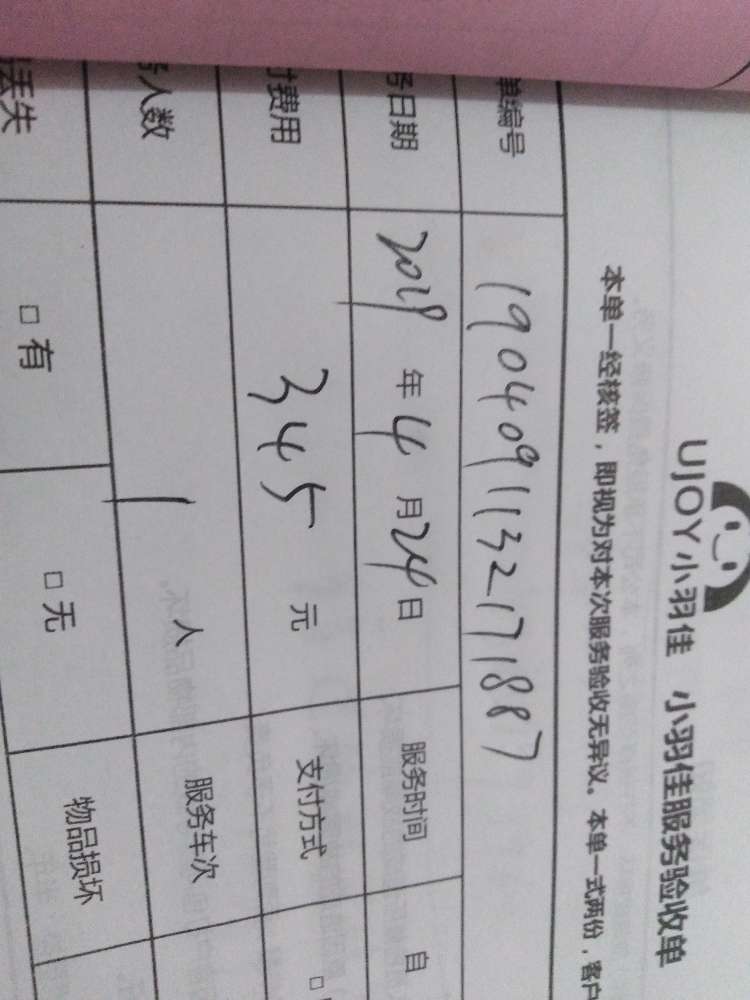 UJOY小羽佳 小羽佳服务验收单
本单一经核签，即视为对本次服务验收无异议。本单一式两份，客户
单编号 1904091132171887
日期 2019年4月24日 服务时间 自
费用 345元 支付方式 □
人数 1人 服务车次
丢失 □有 □无 物品损坏